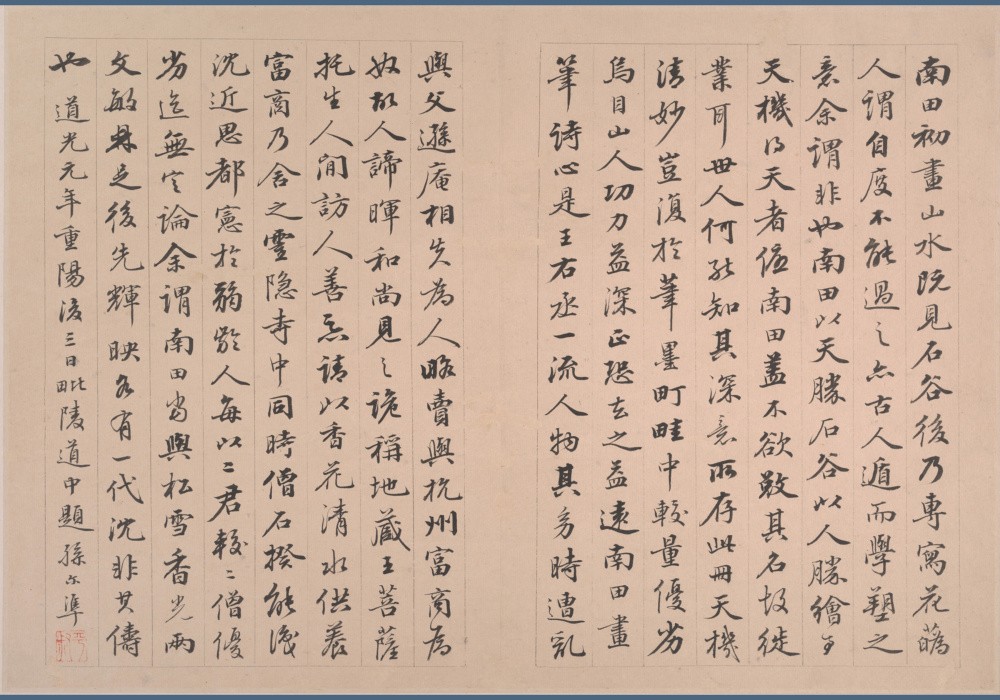 南田初畫山水既見石谷後乃專寫花蘤
人謂自度不能過之亦古人遁而學塑之
意余謂非也南田以天勝石谷以人勝繪事
天機得天者優南田蓋不欲敵其名故徙
業耳世人何能知其深意所存此冊天機
清妙豈復於筆墨町畦中較量優劣
烏目山人功力益深正恐去之益遠南田畫
筆詩心是王右丞一流人物其家時遭亂
與父遜庵相失為人略賣與杭州富商為
奴故人諦暉和尚見之詭稱地藏王菩薩
托生人間訪人善惡請以香花清水供養
富商乃舍之靈隱寺中同時僧石揆能識
沈近思都憲於弱齡人每以二君較二僧優
劣迄無定論余謂南田當與松雪香光兩
文敏具足後先輝映各有一代沈非其儔
也 道光元年重陽後三日毗陵道中題 孫尔準